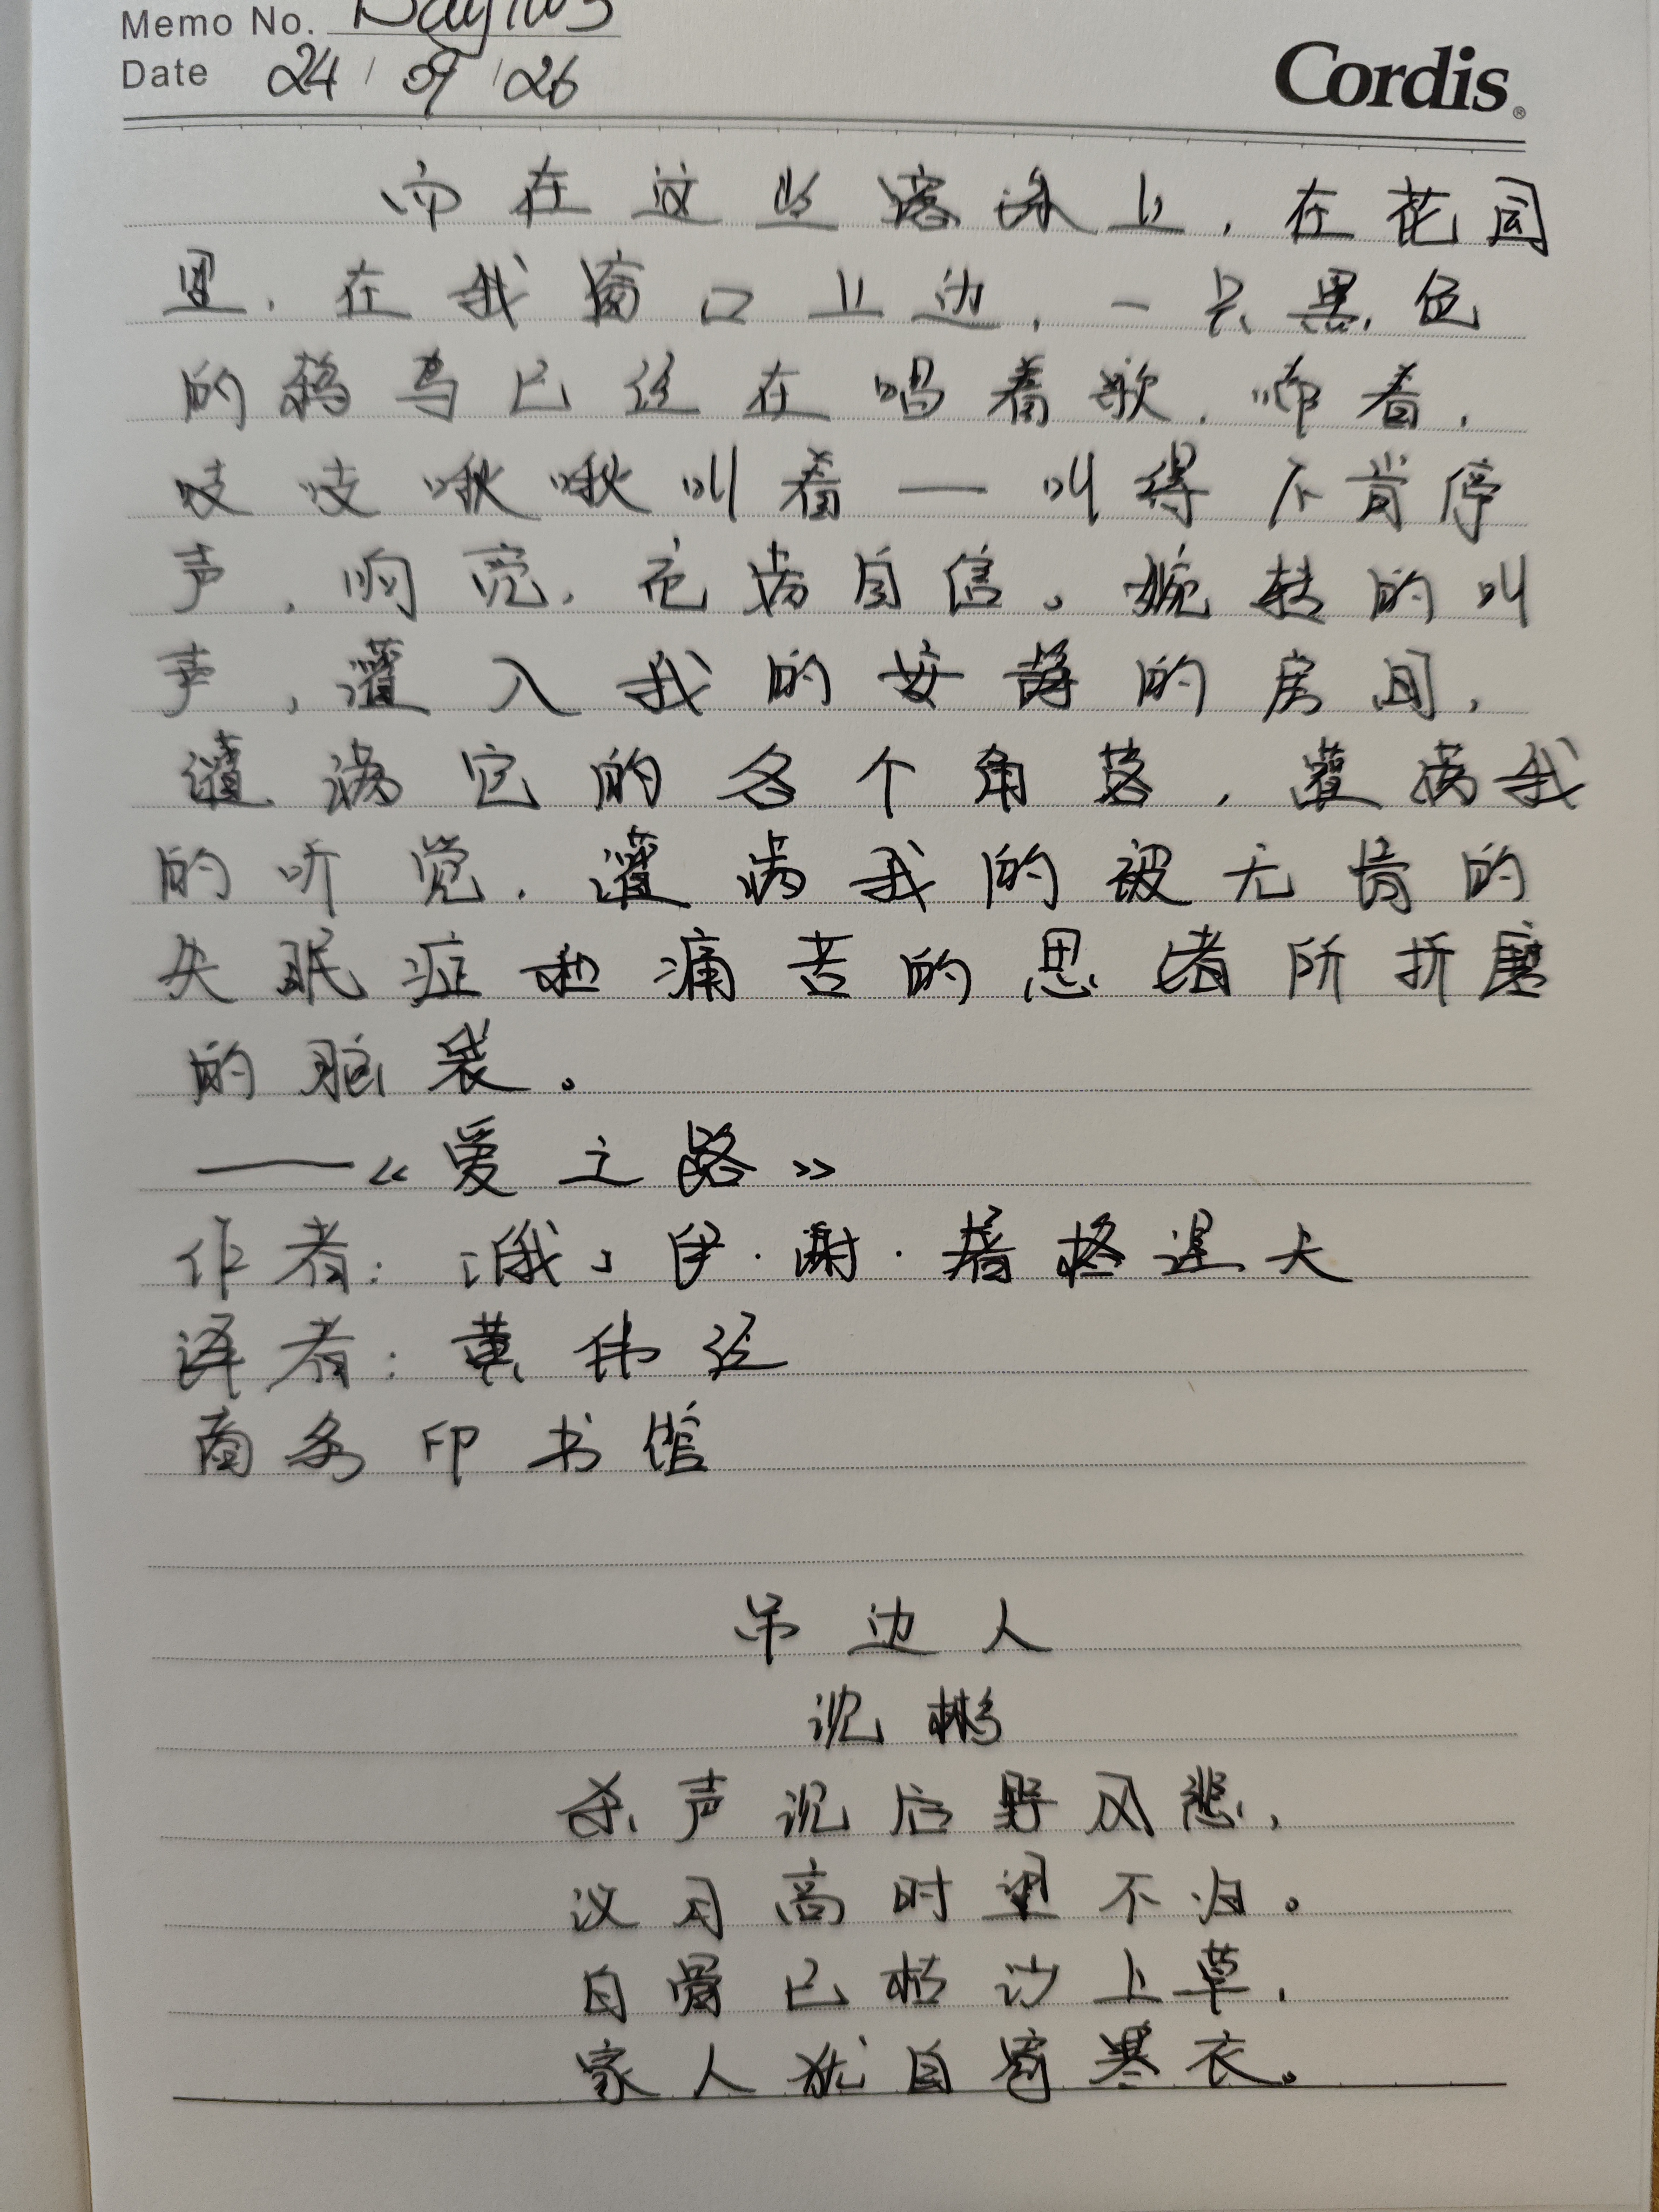 Memo No.
Date 24 / 09 / 26
Cordis®
而在这些露珠上，在花园
里，在我窗口上边，一只黑色
的鸫鸟已经在唱着歌，啼着，
吱吱啾啾叫着——叫得不肯停
声，响亮，充满自信。婉转的叫
声，灌入我的安静的房间，
灌满它的各个角落，灌满我
的听觉，灌满我的被无情的
失眠症和痛苦的思绪所折磨
的脑袋。
——《爱之路》
作者：［俄］伊·谢·屠格涅夫
译者：黄伟经
商务印书馆
吊边人
沈彬
杀声沉后野风悲，
汉月高时望不归。
白骨已枯沙上草，
家人犹自寄寒衣。